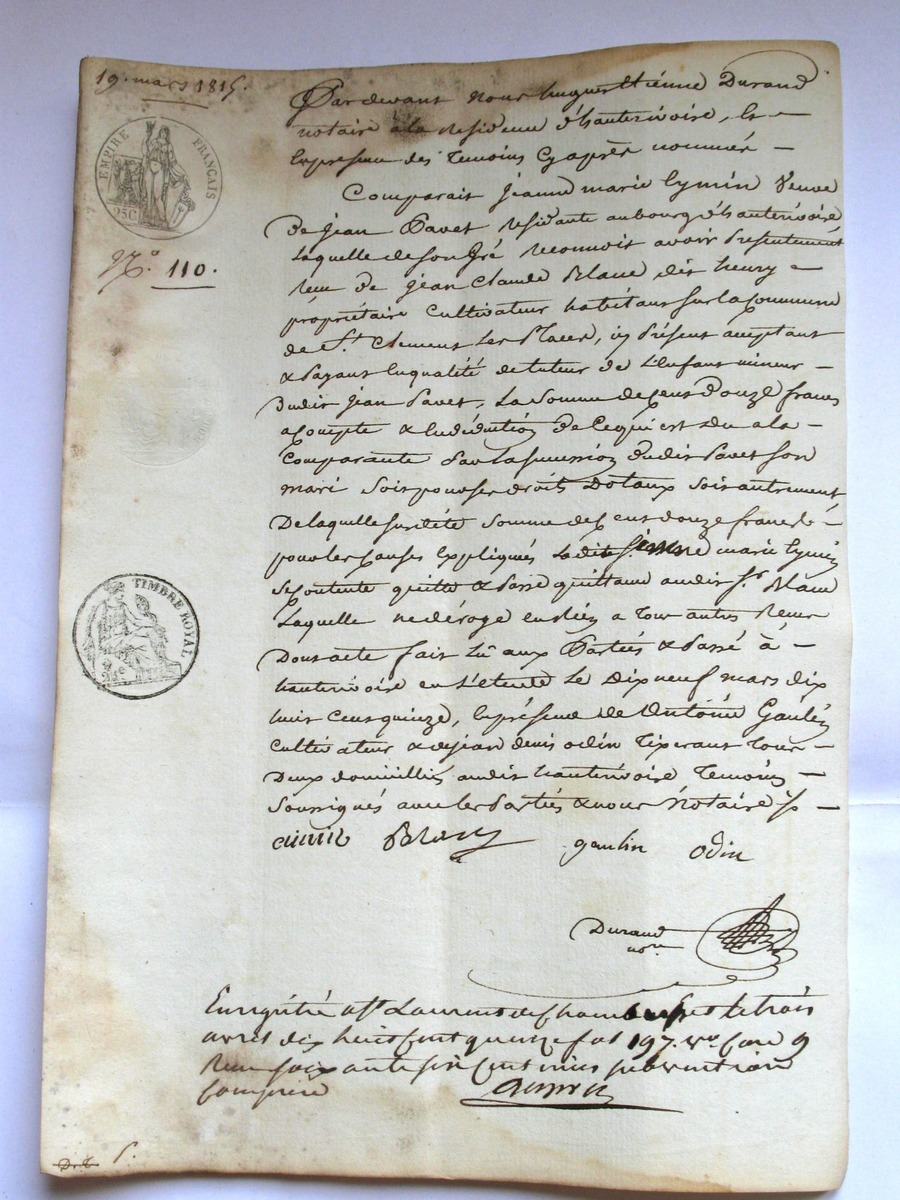 19. mars 1815.
EMPIRE FRANÇAIS
25C
N.o 110.
TIMBRE ROYAL
Pardevant nous hugues Etienne Durand
notaire à la Residence d'hauterivoire, &
En presence des Temoins Cy après nommés
Comparait jeanne marie Eymin Veuve
de jean Pavet Residante au bourg d'hauterivoire
Laquelle de son Gré Reconnoit avoir Présentement
Recu de jean Claude Blanc dit henry
propriétaire cultivateur habitant sur la Commune
de St. Clement Les Places, icy Présent acceptant
& Payant En qualité de tuteur de L'enfant mineur
Dudit jean Pavet, La Somme de Cent Douze francs
a Compte & En déduction De Ce qui est du a la
Comparante Par la Succession dudit Pavet Son
mari Soit pour Ses droits Dotaux Soit autrement
De laquelle susdite Somme de Cent douze francs
pour les Causes Expliqués Ladite jeanne marie Eymin
Se Contente quitte & Passe quittance audit Sr. Blanc
Laquelle ne déroge en Rien a tous autres
Dont acte fait Lû aux Parties & Passé à
hauterivoire en L'étude Le Dix neuf mars dix
huit Cent quinze, En présence de Antoine Gaulin
Cultivateur & de jean denis odin Tixerant Tous
Deux domiciliés audit hauterivoire Temoins
Soussignés avec les Parties & nous Notaire
Blanc gaulin odin
Durand
nore.
Enregistré a St. Laurent de Chamousset le trois
avril dix huit cent quinze fol 197. vo. Case 9
Recu soixante six centimes subvention
Comprise